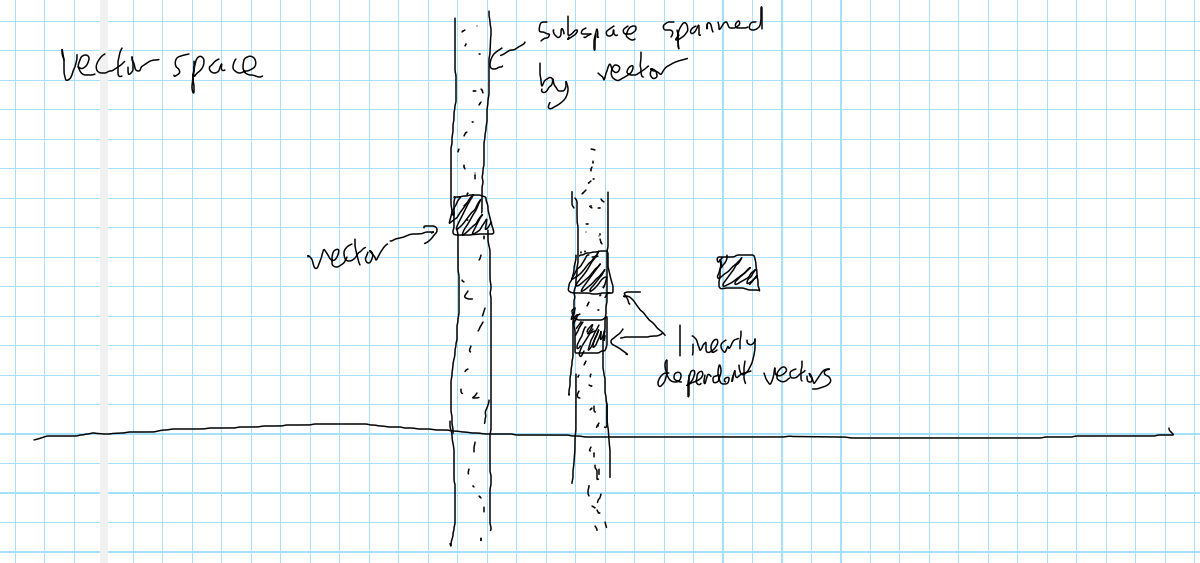 Vector space
subspace spanned
by vector
vector
linearly
dependent vectors